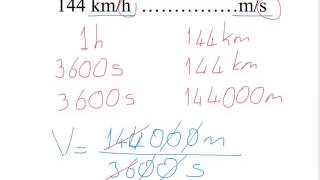 144 km/h ……………m/s
1h 144km
3600s 144km
3600s 144000m
V= 144000m
3600 s